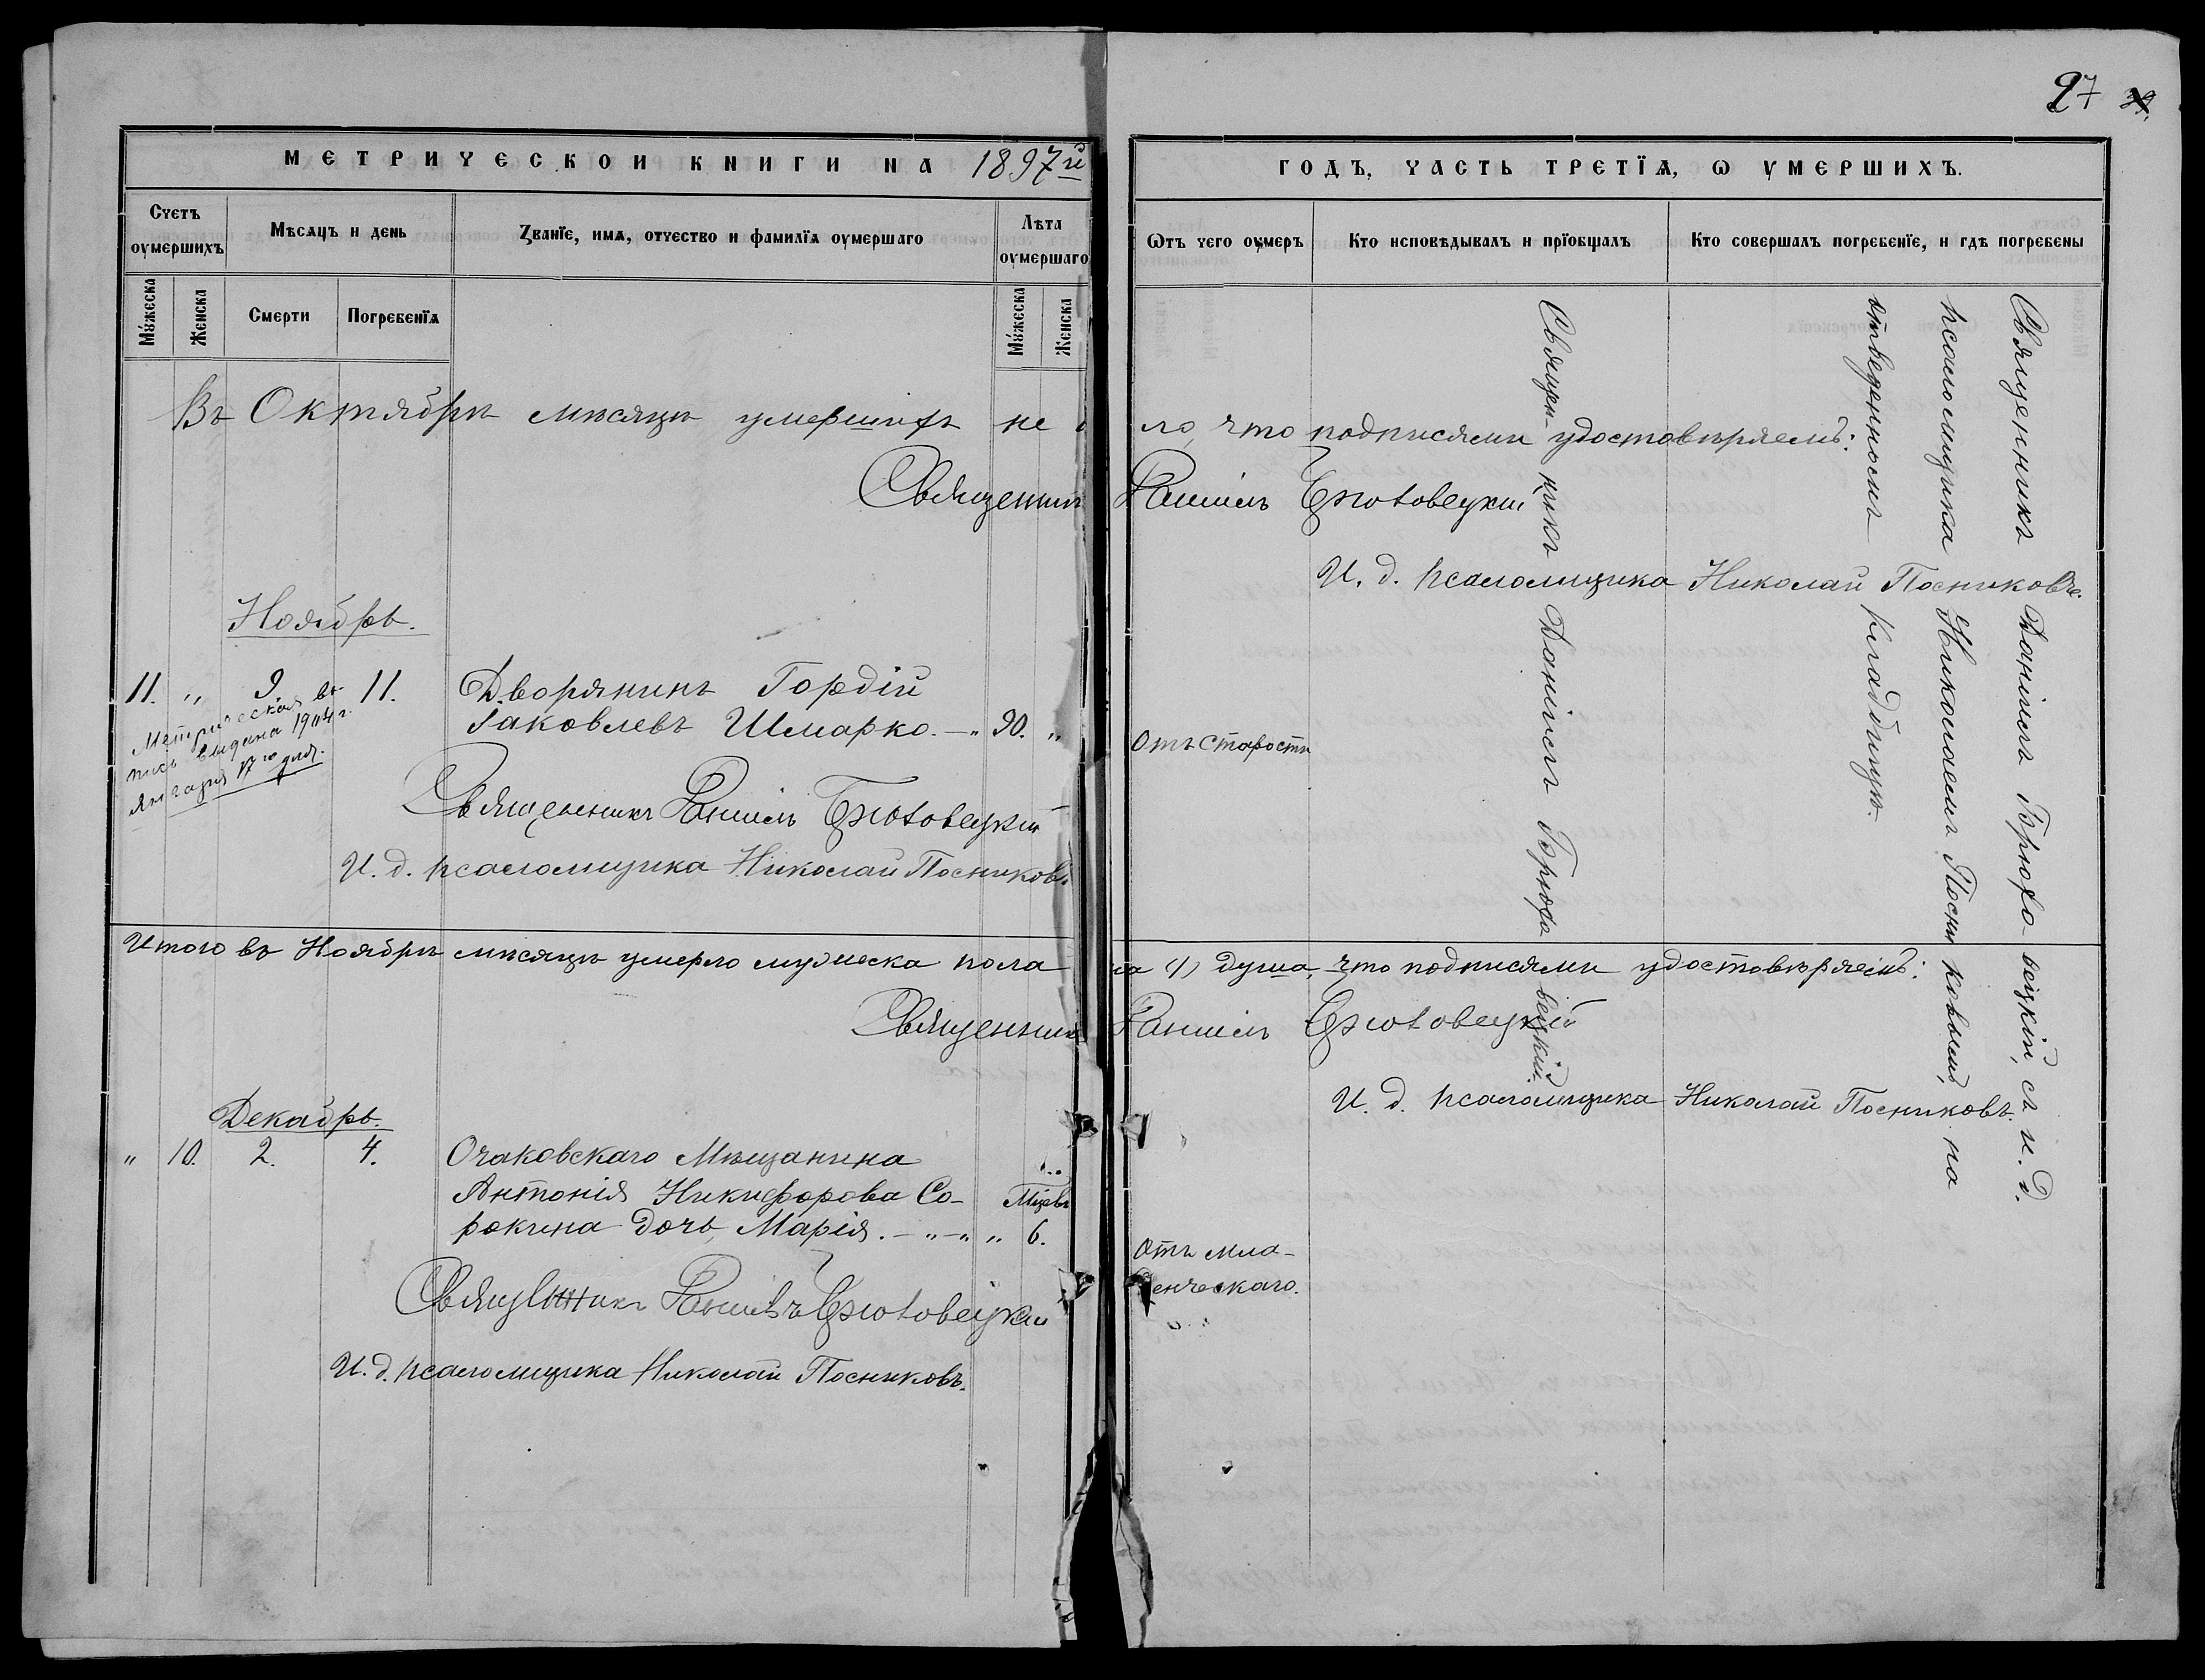 27
МЕТРИЧЕСКОЙ КНИГИ НА 1897й ГОДЪ, ЧАСТЬ ТРЕТІѦ, Ѡ УМЕРШИХЪ.
Счетъ оумершихъ
Мѣсѧцъ и день
Званїе, имѧ, отчество и фамилїѧ оумершаго
Лѣта оумершаго
Ѿтъ чего оумеръ
Кто исповѣдывалъ и прїобщалъ
Кто совершалъ погребенїе, и гдѣ погребены
Мꙋжеска
Женска
Смерти
Погребенїѧ
Мꙋжеска
Женска
Въ Октябрѣ мѣсяцѣ умершихъ не ло, что подписями удостовѣряемъ:
Священникъ Даніилъ Брюховецкій
И. д. псаломщика Николай Посниковъ.
Ноябрь.
11. „ 9. 11. Дворянинъ Гордій
Іаковлевъ Шмарко. — „ 90. „ Отъ старости
Метрическая вы-
пись выдана 1904 г.
Января 17го дня.
Священникъ Даніилъ Брюховецкій
И. д. псаломщика Николай Посниковъ
Итого въ Ноябрѣ мѣсяцѣ умерло мужеска пола (1) душа, что подписями удостовѣряемъ:
Священникъ Даніилъ Брюховецкій
И. д. псаломщика Николай Посниковъ.
Декабрь.
„ 10. 2. 4. Очаковскаго Мѣщанина
Антонія Никифорова Со-
рокина дочь Марія. — „ — „ „ 6. Отъ мла-
Мцевъ
денческаго.
Священникъ Даніилъ Брюховецкій
И. д. псаломщика Николай Посниковъ.
Священникъ Даніилъ Брюховецкій.
Священникъ Даніилъ Брюховецкій, съ и. д.
псаломщика Николаемъ Посниковымъ, на
отведенномъ кладбищѣ.